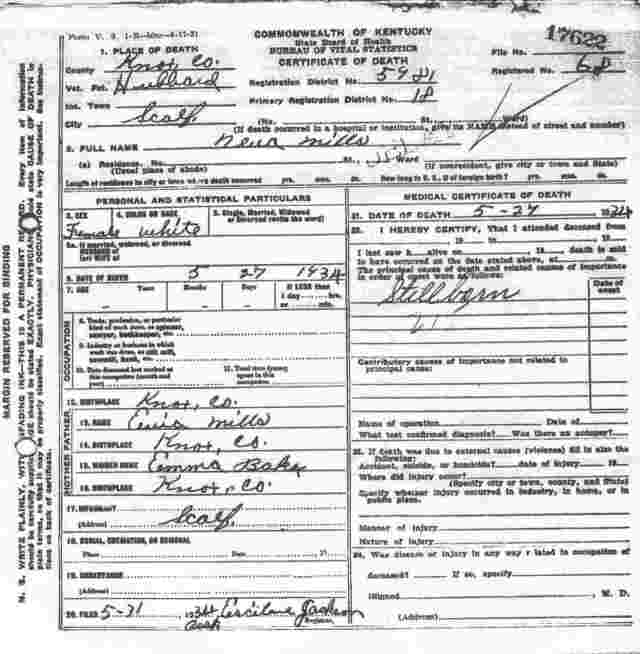 Form V. S. 1-B
COMMONWEALTH OF KENTUCKY
State Board of Health
BUREAU OF VITAL STATISTICS
CERTIFICATE OF DEATH
File No. 17622
Registered No. 68
1. PLACE OF DEATH
County Knox Co.
Vot. Pct. Hubbard
Registration District No. 5981
Inc. Town
Primary Registration District No. 18
City Scalf (No. St., Ward)
(If death occurred in a hospital or institution, give its NAME instead of street and number)
2. FULL NAME Mills
(a) Residence. No. St., Ward
(Usual place of abode) (If nonresident, give city or town and State)
Length of residence in city or town where death occurred yrs. mos. ds. How long in U. S., if of foreign birth? yrs. mos. ds.
PERSONAL AND STATISTICAL PARTICULARS
3. SEX 4. COLOR OR RACE 5. Single, Married, Widowed
or Divorced (write the word)
Female White
5a. If married, widowed, or divorced
HUSBAND of
(or) WIFE of
6. DATE OF BIRTH 5 27 1934
7. AGE Years Months Days If LESS than
1 day hrs.
or min.
OCCUPATION
8. Trade, profession, or particular
kind of work done, as spinner,
sawyer, bookkeeper, etc.
9. Industry or business in which
work was done, as silk mill,
sawmill, bank, etc.
10. Date deceased last worked at
this occupation (month and
year)
11. Total time (years)
spent in this
occupation
12. BIRTHPLACE Knox, Co.
FATHER
13. NAME Mills
14. BIRTHPLACE Knox, Co.
MOTHER
15. MAIDEN NAME Emma Baker
16. BIRTHPLACE Knox, Co.
17. INFORMANT
(Address) Scalf
18. BURIAL, CREMATION, OR REMOVAL
Place Date 19
19. UNDERTAKER
(Address)
20. FILED 5-31 1934 Jackson
Registrar.
MEDICAL CERTIFICATE OF DEATH
21. DATE OF DEATH 5-27 1934
22. I HEREBY CERTIFY, That I attended deceased from
19 to 19
I last saw h alive on 19 death is said
to have occurred on the date stated above, at m.
The principal cause of death and related causes of importance
in order of onset were as follows:
Date of
onset
Stillborn
Contributory causes of importance not related to
principal cause:
Name of operation Date of
What test confirmed diagnosis? Was there an autopsy?
23. If death was due to external causes (violence) fill in also the
following:
Accident, suicide, or homicide? date of injury 19
Where did injury occur?
(Specify city or town, county, and State)
Specify whether injury occurred in industry, in home, or in
public place.
Manner of injury
Nature of injury
24. Was disease or injury in any way related to occupation of
deceased? If so, specify
(Signed) M. D.
(Address)
MARGIN RESERVED FOR BINDING